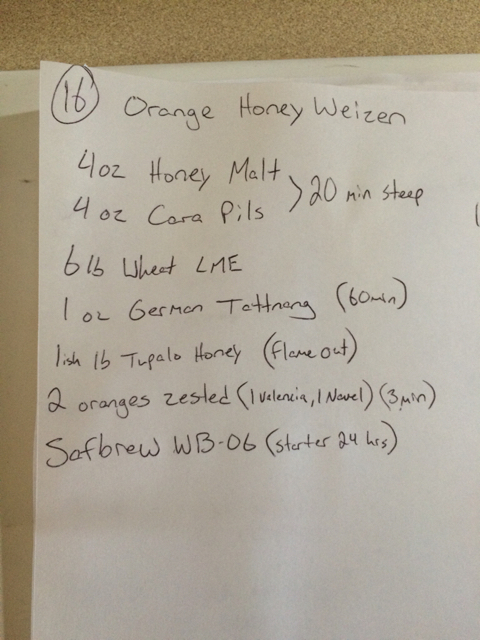 16 Orange Honey Weizen
4oz Honey Malt
4 oz Cara Pils
> 20 min steep
6 lb Wheat LME
1 oz German Tattnang (60min)
1ish lb Tupalo Honey (flame out)
2 oranges zested (1 Valencia, 1 Navel) (3 min)
Safbrew WB-06 (starter 24 hrs)